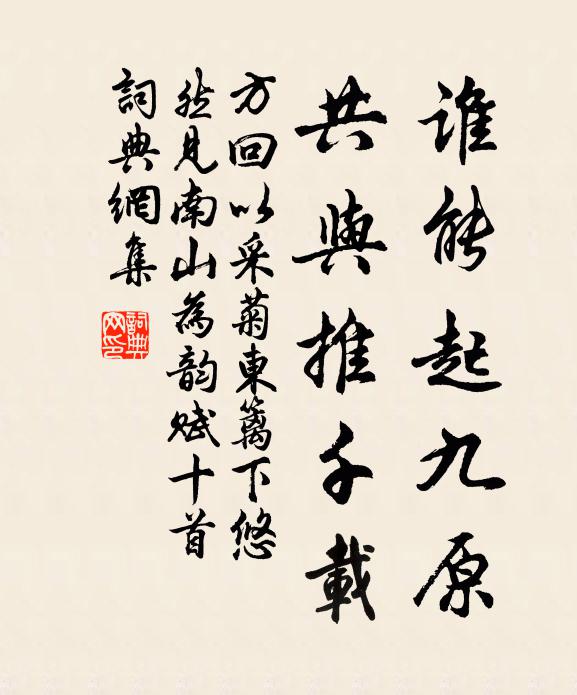 谁能起九原
共與推千載
方回以采菊東篱下悠
然见南山為韵赋十首
詞典網集
詞典网印